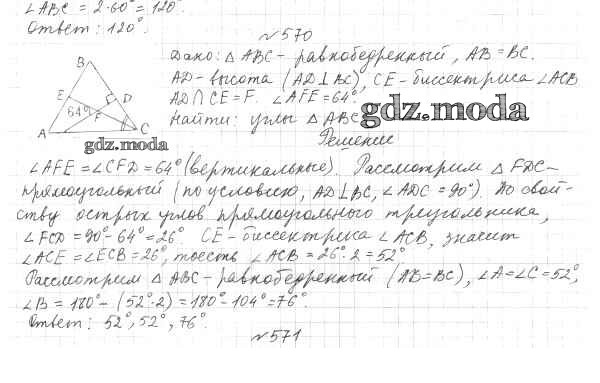 ∠ABC = 2·60° = 120°.
Ответ: 120°.
№570
Дано: △ABC - равнобедренный, AB = BC.
AD - высота (AD⊥BC), CE - биссектриса ∠ACB
AD∩CE = F. ∠AFE = 64°.
Найти: углы △ABC
Решение
B
E
D
64°
F
A
C
gdz.moda
gdz.moda
∠AFE = ∠CFD = 64° (вертикальные). Рассмотрим △FDC-
прямоугольный (по условию, AD⊥BC, ∠ADC = 90°) По свой-
ству острых углов прямоугольного треугольника,
∠FCD = 90° - 64° = 26°. CE - биссектриса ∠ACB, значит
∠ACE = ∠ECB = 26°, тоесть ∠ACB = 26°·2 = 52°
Рассмотрим △ABC - равнобедренный (AB = BC), ∠A = ∠C = 52°,
∠B = 180° - (52°·2) = 180° - 104° = 76°.
Ответ: 52°, 52°, 76°.
№571